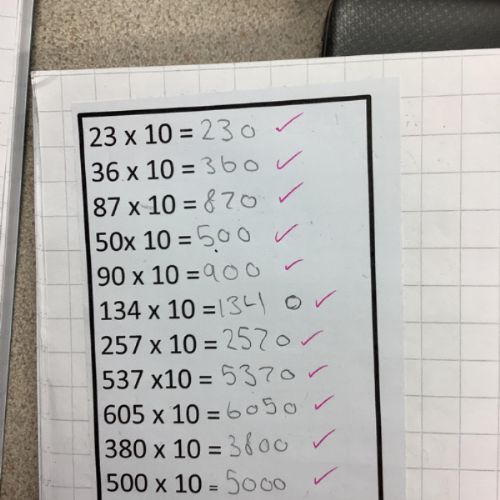 23 x 10 = 230
36 x 10 = 360
87 x 10 = 870
50x 10 = 500
90 x 10 = 900
134 x 10 = 1340
257 x 10 = 2570
537 x10 = 5370
605 x 10 = 6050
380 x 10 = 3800
500 x 10 = 5000